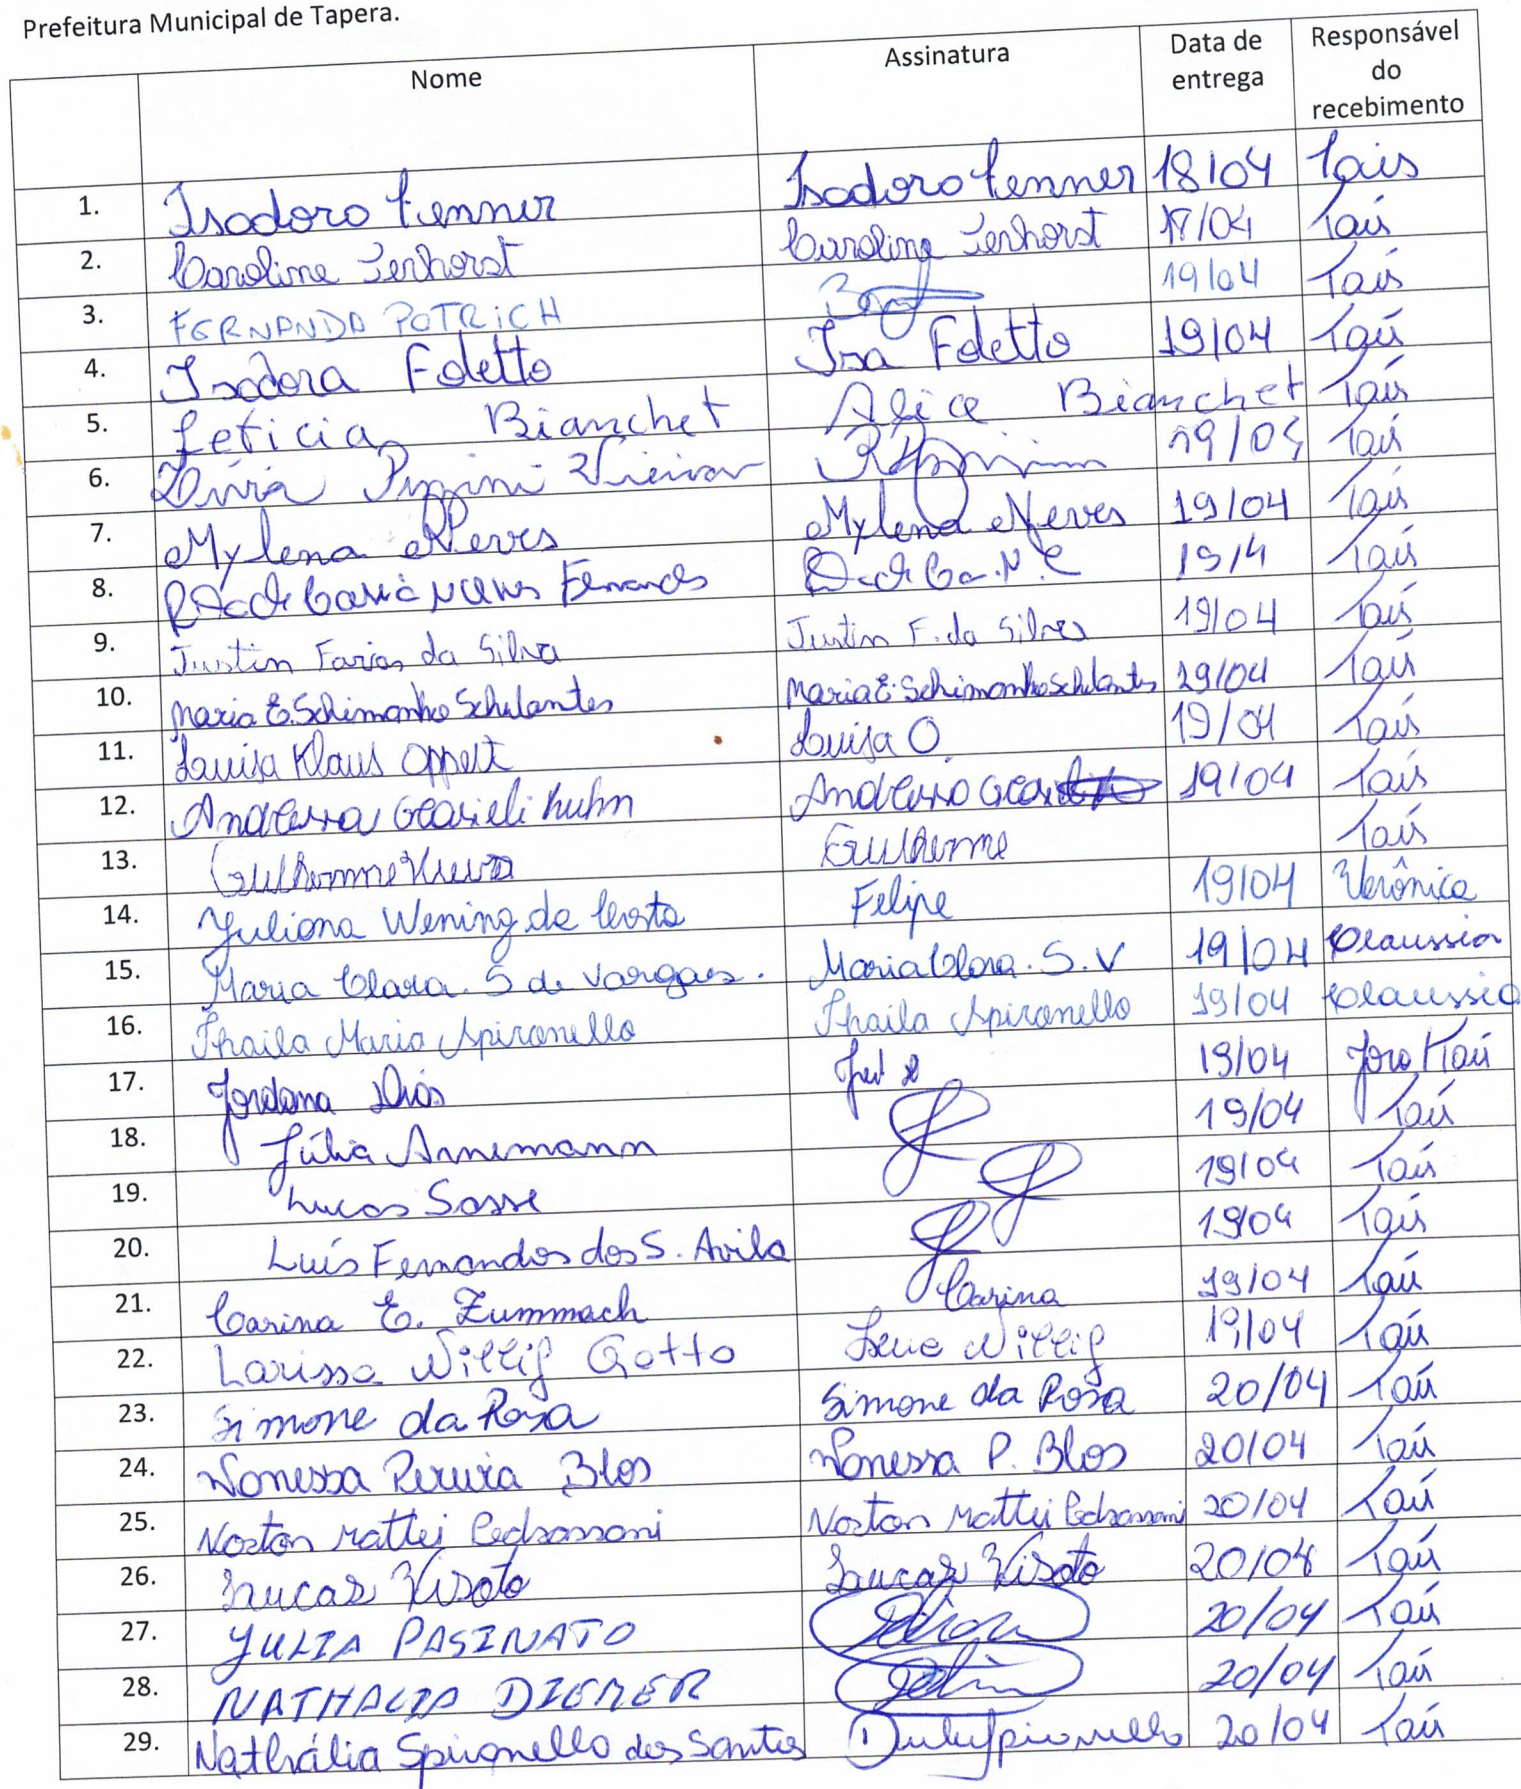 Prefeitura Municipal de Tapera.
Nome Assinatura Data de entrega Responsável do recebimento
1. Isodoro Kenner Isodoro Kenner 18/04 Tais
2. Caroline Terhorst Caroline Terhorst 18/04 Tais
3. FERNANDA POTRICH 19/04 Tais
4. Isadora Foletto Isa Foletto 19/04 Tais
5. Leticia Bianchet Alice Bianchet Tais
6. Lívia Pizzini Vieira 19/04 Tais
7. Mylena Neves Mylena Neves 19/04 Tais
8. 19/4 Tais
9. Justin Farias da Silva Justin F. da Silva 19/04 Tais
10. Maria E. Schimanko Schulantes Maria E. Schimanko Schulantes 19/04 Tais
11. Luisa Klaus Oppelt Luisa O 19/04 Tais
12. Andressa Grasieli Kuhn Andressa 19/04 Tais
13. Guilherme Vieira Guilherme Tais
14. Yuliana Wening da Costa Felipe 19/04 Verônica
15. Maria Clara. S de Vargas. Maria Clara. S. V 19/04 Claussia
16. Thaila Maria Spironello Thaila Spironello 19/04 Claussia
17. Jordana Dias 19/04 Tais
18. Júlia Arnemann 19/04 Tais
19. Lucas Sasse 19/04 Tais
20. Luís Fernandos dos S. Avila 19/04 Tais
21. Carina E. Zummach Carina 19/04 Tais
22. Larissa Willig Gotto Willig 19/04 Tais
23. Simone da Rosa Simone da Rosa 20/04 Tais
24. Vanessa Pereira Blos Vanessa P. Blos 20/04 Tais
25. Noston Mattei Pedrassani Noston Mattei Pedrassani 20/04 Tais
26. Lucas Visoto Lucas Visoto 20/04 Tais
27. YULIA PASINATO 20/04 Tais
28. NATHALIA DIEMER 20/04 Tais
29. Nathália Spironello dos Santos 20/04 Tais